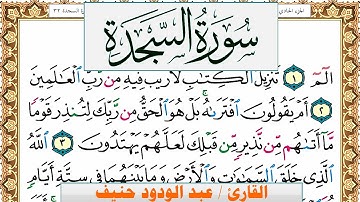 الجزء الحادي
السجدة ٣٢
سورة السجدة
الٓمٓ ١ تَنزِيلُ الْكِتَٰبِ لَا رَيْبَ فِيهِ مِن رَّبِّ الْعَٰلَمِينَ
٢ أَمْ يَقُولُونَ افْتَرَىٰهُ ۚ بَلْ هُوَ الْحَقُّ مِن رَّبِّكَ لِتُنذِرَ قَوْمًا
مَّا أَتَىٰهُم مِّن نَّذِيرٍ مِّن قَبْلِكَ لَعَلَّهُمْ يَهْتَدُونَ ٣ اللَّهُ
الَّذِي خَلَقَ السَّمَٰوَٰتِ وَالْأَرْضَ وَمَا بَيْنَهُمَا فِي سِتَّةِ أَيَّامٍ
القارئ / عبد الودود حنيف